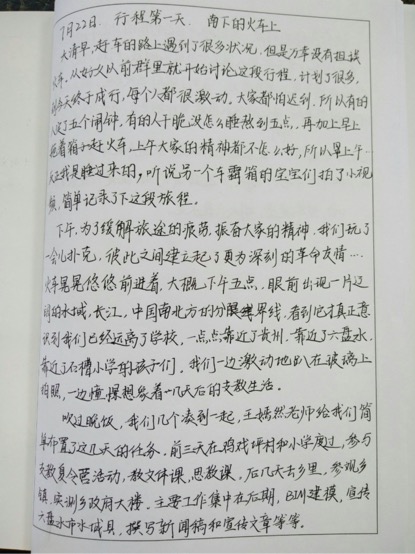 7月22日. 行程第一天. 南下的火车上
大清早,赶车的路上遇到了很多状况,但是万幸没有担误
火车. 从好久以前群里就开始讨论这段行程,计划了很多,
到今天终于成行,每个人都很激动. 大家都怕迟到,所以有的
人定了五个闹钟,有的人干脆没怎么睡熬到五点,再加上早上
拖着箱子赶火车,上午大家的精神都不怎么好,所以早上午
天正我是睡过来的,听说另一个车霸箱的宝宝们拍了小视
频,简单记录了下这段旅程.
下午,为了缓解旅途的疲劳,振奋大家的精神,我们玩了
一会儿扑克,彼此之间建立起了更为深刻的革命友情…
火车晃晃悠悠前进着,大概下午五点,眼前出现一片辽
阔的水域,长江,中国南北方的分界线,看到它才真正意
识到我们已经远离了学校,一点点靠近了贵州,靠近了六盘水,
靠近了石槽小学的孩子们. 我们一边激动地趴在玻璃上
拍照,一边憧憬想象着几天后的支教生活.
吃过晚饭,我们几个凑到一起,王嫣然老师给我们简
单布置了这几天的任务. 前三天在鸡戏坪村和小学度过,参与
支教夏令营活动,教文体课,思教课,后几天去乡里,参观乡
镇,实测乡政府大楼. 主要工作集中在后期,BIM建模,宣传
六盘水市水城县,撰写新闻稿和宣传文章等等.